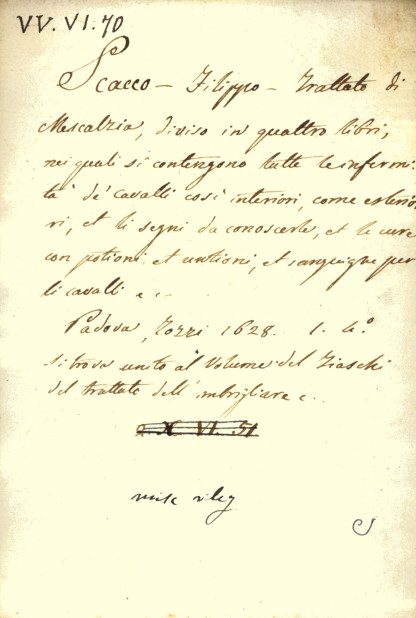 VV. VI. 70
Scacco – Filippo – Trattato di
Mescalzia, diviso in quattro libri,
nei quali si contengono tutte le infermi-
tà de' cavalli così interiori, come esterio-
ri, et li segni da conoscerle, et le cure
con potioni et untioni, et sanguigne per
li cavalli
Padova, Tozzi 1628. 1. 4.º
si trova unito al Volume del Fiaschi
del trattato dell' imbrigliare
X VI. 51
misc